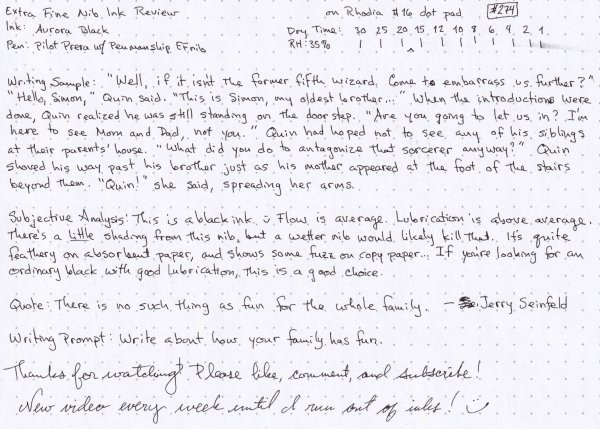 Extra Fine Nib Ink Review on Rhodia #16 dot pad #274
Ink: Aurora Black Dry Time: 30 25 20 15 12 10 8 6 4 2 1
Pen: Pilot Prera w/ Penmanship EF nib RH: 35%
Writing Sample: "Well, if it isn't the former fifth wizard. Come to embarrass us further?"
"Hello, Simon," Quin said. "This is Simon, my oldest brother..." When the introductions were
done, Quin realized he was still standing on the doorstep. "Are you going to let us in? I'm
here to see Mom and Dad, not you." Quin had hoped not to see any of his siblings
at their parents' house. "What did you do to antagonize that sorcerer anyway?" Quin
shoved his way past his brother just as his mother appeared at the foot of the stairs
beyond them. "Quin!" she said, spreading her arms.
Subjective Analysis: This is a black ink. :) Flow is average. Lubrication is above average.
There's a little shading from this nib, but a wetter nib would likely kill that. It's quite
feathery on absorbent paper, and shows some fuzz on copy paper... If you're looking for an
ordinary black with good lubrication, this is a good choice.
Quote: There is no such thing as fun for the whole family. — Jerry Seinfeld
Writing Prompt: Write about how your family has fun.
Thanks for watching! Please like, comment, and subscribe!
New video every week until I run out of inks! :)